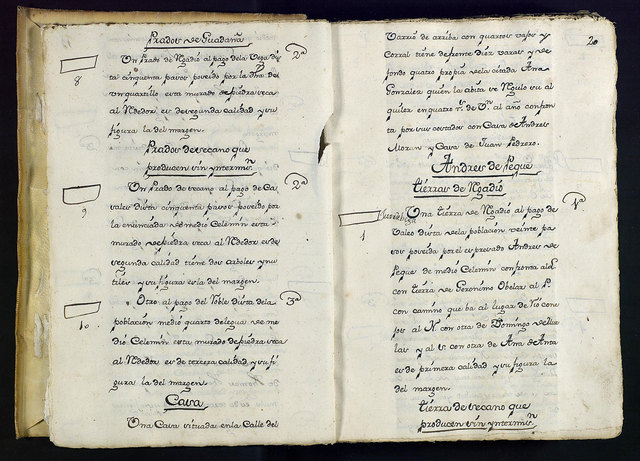 Prados de Guadaña
Un Prado de Regadío al pago de la Vega dis
ta cinquenta pasos poseido por la dha. de
un quartillo esta murado de piedra seca
al Rededor es de segunda calidad y su
figura la del margen.
2ª
8
Prados de secano que
producen sin yntermisn.
Un Prado de secano al pago de Ca
vales dista cinquenta pasos poseido por
la enunciada de medio Celemin esta
murado de piedra seca al Rededor es de
segunda calidad tiene dos arboles ynu
tiles y su figura es la del margen.
2ª
9
Otro al pago del Roble dista de la
población medio quarto de legua de me
dio Celemin esta murado de piedra seca
al Rededor es de tercera calidad y su fi
gura la del margen.
3ª
10.
Casa
Una Casa situada en la Calle del
20
Varrio de arriba con quartos vajos y
Corral tiene de frente diez varas y de
fondo quatro propia de la citada Ana
Gonzalez quien la abita se Regulo su al
quiler en quatro rs. de Vn. al año confron
ta por sus costados con Casa de Andres
Moran y Casa de Juan Pedrero.
Andres de Peque
tierras de Regadío
Una tierra de Regadío al pago de
Vales dista de la población veinte pa
sos poseida por el expresado Andres de
Peque de medio Celemin confronta al L
con tierra de Geronimo Obelar al P
con camino que ba al lugar de
al N con otra de Domingo de
y al S con otra de Ana de Anta
es de primera calidad y su figura la
del margen.
1ª
1
tierra de secano que
producen sin yntermisn.